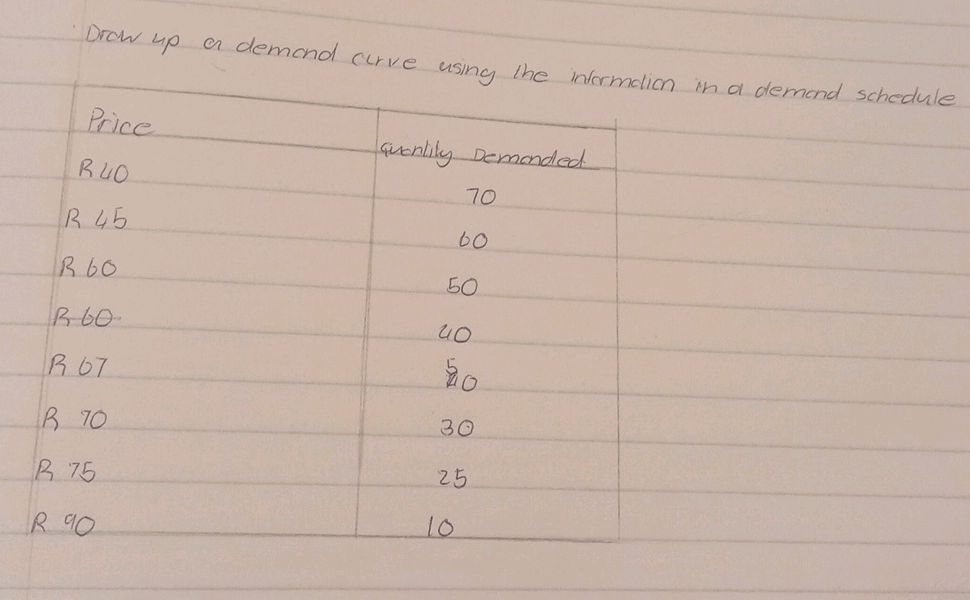 Draw up a demand curve using the information in a demand schedule
Price Quantity Demanded
R 40 70
R 45 60
R 60 50
R 60 40
R 67 50
R 70 30
R 75 25
R 90 10